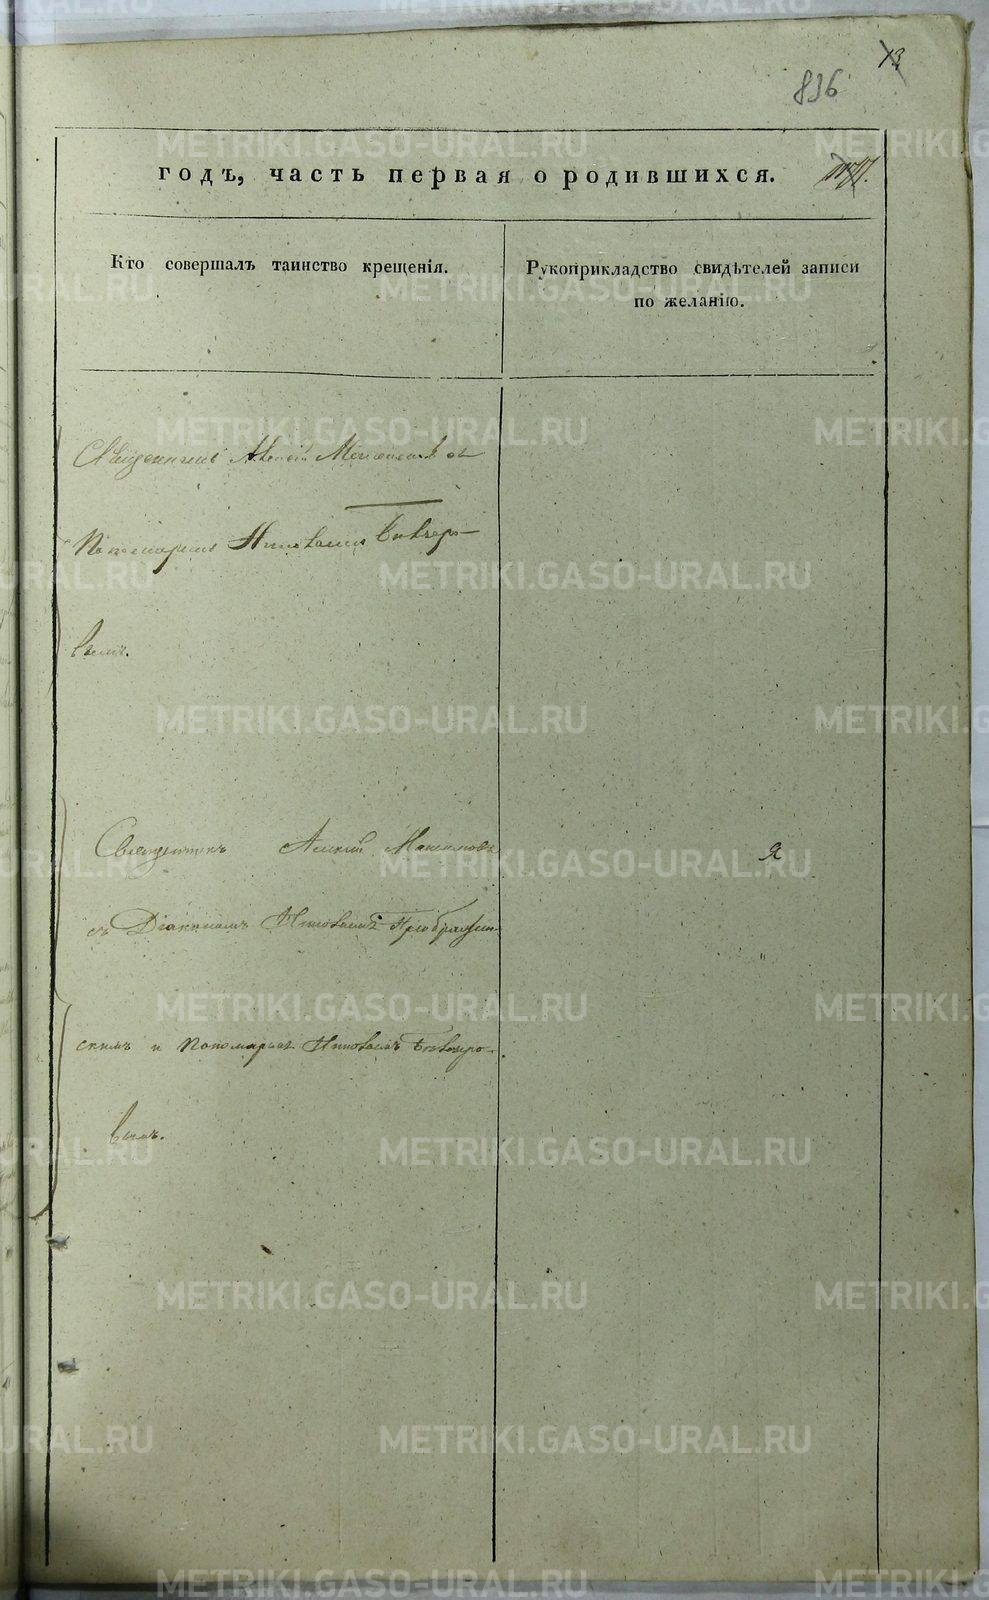 13
836
годъ, часть первая о родившихся.
Кто совершалъ таинство крещенія.
Рукоприкладство свидѣтелей записи
по желанію.
Священникъ Алексій Максимовъ съ
Пономаремъ Николаемъ
вымъ.
Священникъ Алексій Максимовъ
я
съ Діакономъ Николаемъ Преображен-
скимъ и Пономаремъ Николаемъ
вымъ.
METRIKI.GASO-URAL.RU